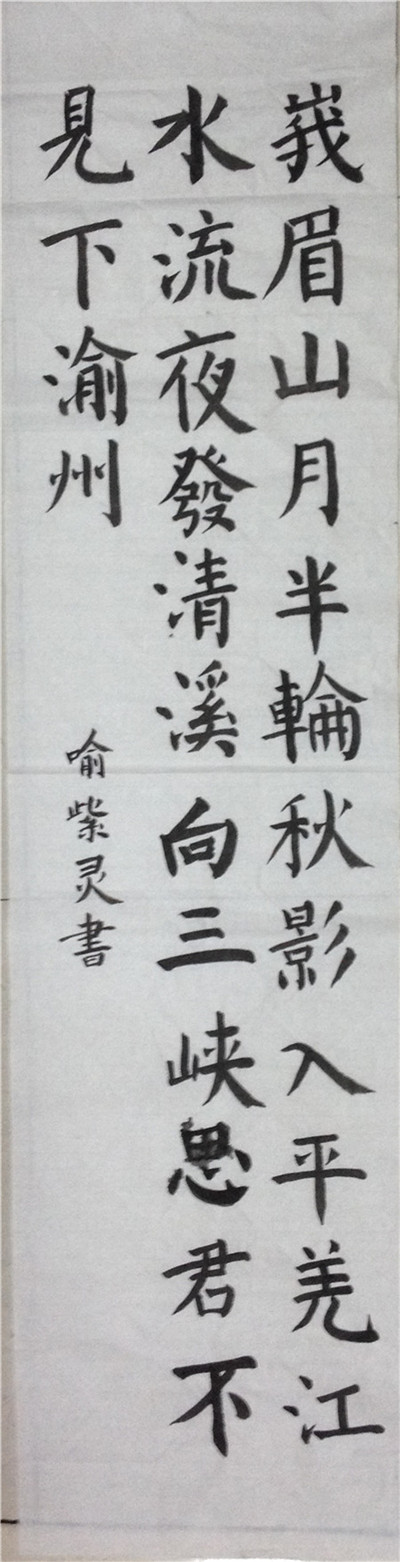 峩眉山月半輪秋影入平羌江
水流夜發清溪向三峡思君不
見下渝州
喻紫灵書